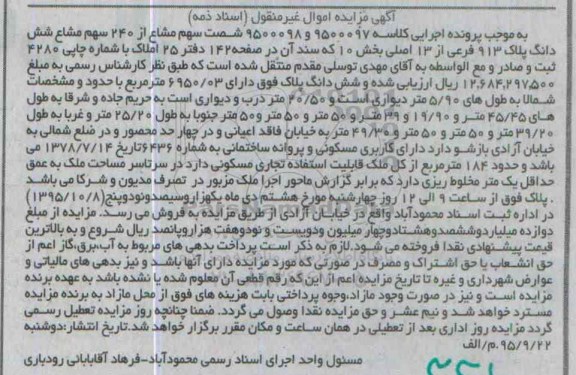 آگهی مزایده اموال غیرمنقول (اسناد ذمه)
به موجب پرونده اجرایی کلاسه ۹۵۰۰۰۹۷ و ۹۵۰۰۰۹۸ شصت سهم مشاع از ۲۴۰ سهم مشاع شش
دانگ پلاک ۹۱۳ فرعی از ۱۳ اصلی بخش ۱۰ که سند آن در صفحه ۱۴۲ دفتر ۲۵ املاک با شماره چاپی ۴۲۸۰
ثبت و صادر و مع الواسطه به آقای مهدی توسلی مقدم منتقل شده است که طبق نظر کارشناس رسمی به مبلغ
۱۲،۶۸۴،۲۹۷،۵۰۰ ریال ارزیابی شده و شش دانگ پلاک فوق دارای ۶۹۵۰/۰۳ مترمربع با حدود و مشخصات
شمالا به طول های ۵/۹۰ متر دیواری است و ۲۰/۵۰ متر درب و دیواری است به حریم جاده و شرقا به طول
های ۴۵/۴۵ متر و ۱۹/۹۰ و ۳۹ متر و ۵۰ متر و ۵۰ متر و ۵۰ متر جنوبا به طول ۲۵/۲۰ متر و غربا به طول
۳۹/۲۰ متر و ۵۰ متر و ۵۰ متر و ۴۹/۳۰ متر به خیابان فاقد اعیانی و در چهار حد محصور و در ضلع شمالی به
خیابان آزادی بازشو دارد دارای کاربری مسکونی و پروانه ساختمانی به شماره ۶۴۳۶ تاریخ ۱۳۷۸/۷/۱۴ می
باشد و حدود ۱۸۴ مترمربع از کل ملک قابلیت استفاده تجاری مسکونی دارد در سرتاسر مساحت ملک به عمق
حداقل یک متر مخلوط ریزی دارد که برابر گزارش مامور اجرا ملک مزبور در تصرف مدیون و شرکا می باشد
. پلاک فوق از ساعت ۹ الی ۱۲ روز چهارشنبه مورخ هشتم دی ماه یکهزاروسیصدونودوپنج (۱۳۹۵/۱۰/۸)
در اداره ثبت اسناد محمودآباد واقع در خیابان آزادی از طریق مزایده به فروش می رسد. مزایده از مبلغ
دوازده میلیاردوششصدوهشتادوچهار میلیون ودویست و نودوهفت هزاروپانصد ریال شروع و به بالاترین
قیمت پیشنهادی نقدا فروخته می شود.لازم به ذکر است پرداخت بدهی های مربوط به آب،برق،گاز اعم از
حق انشعاب یا حق اشتراک و مصرف در صورتی که مورد مزایده دارای آنها باشد و نیز بدهی های مالیاتی و
عوارض شهرداری و غیره تا تاریخ مزایده اعم از این که رقم قطعی آن معلوم شده یا نشده باشد به عهده برنده
مزایده است و نیز در صورت وجود مازاد،وجوه پرداختی بابت هزینه های فوق از محل مازاد به برنده مزایده
مسترد خواهد شد و نیم عشر و حق مزایده نقدا وصول می گردد. ضمنا چنانچه روز مزایده تعطیل رسمی
گردد مزایده روز اداری بعد از تعطیلی در همان ساعت و مکان مقرر برگزار خواهد شد.تاریخ انتشار:دوشنبه
۹۵/۹/۲۲.م/الف
مسئول واحد اجرای اسناد رسمی محمودآباد-فرهاد آقابابائی رودباری